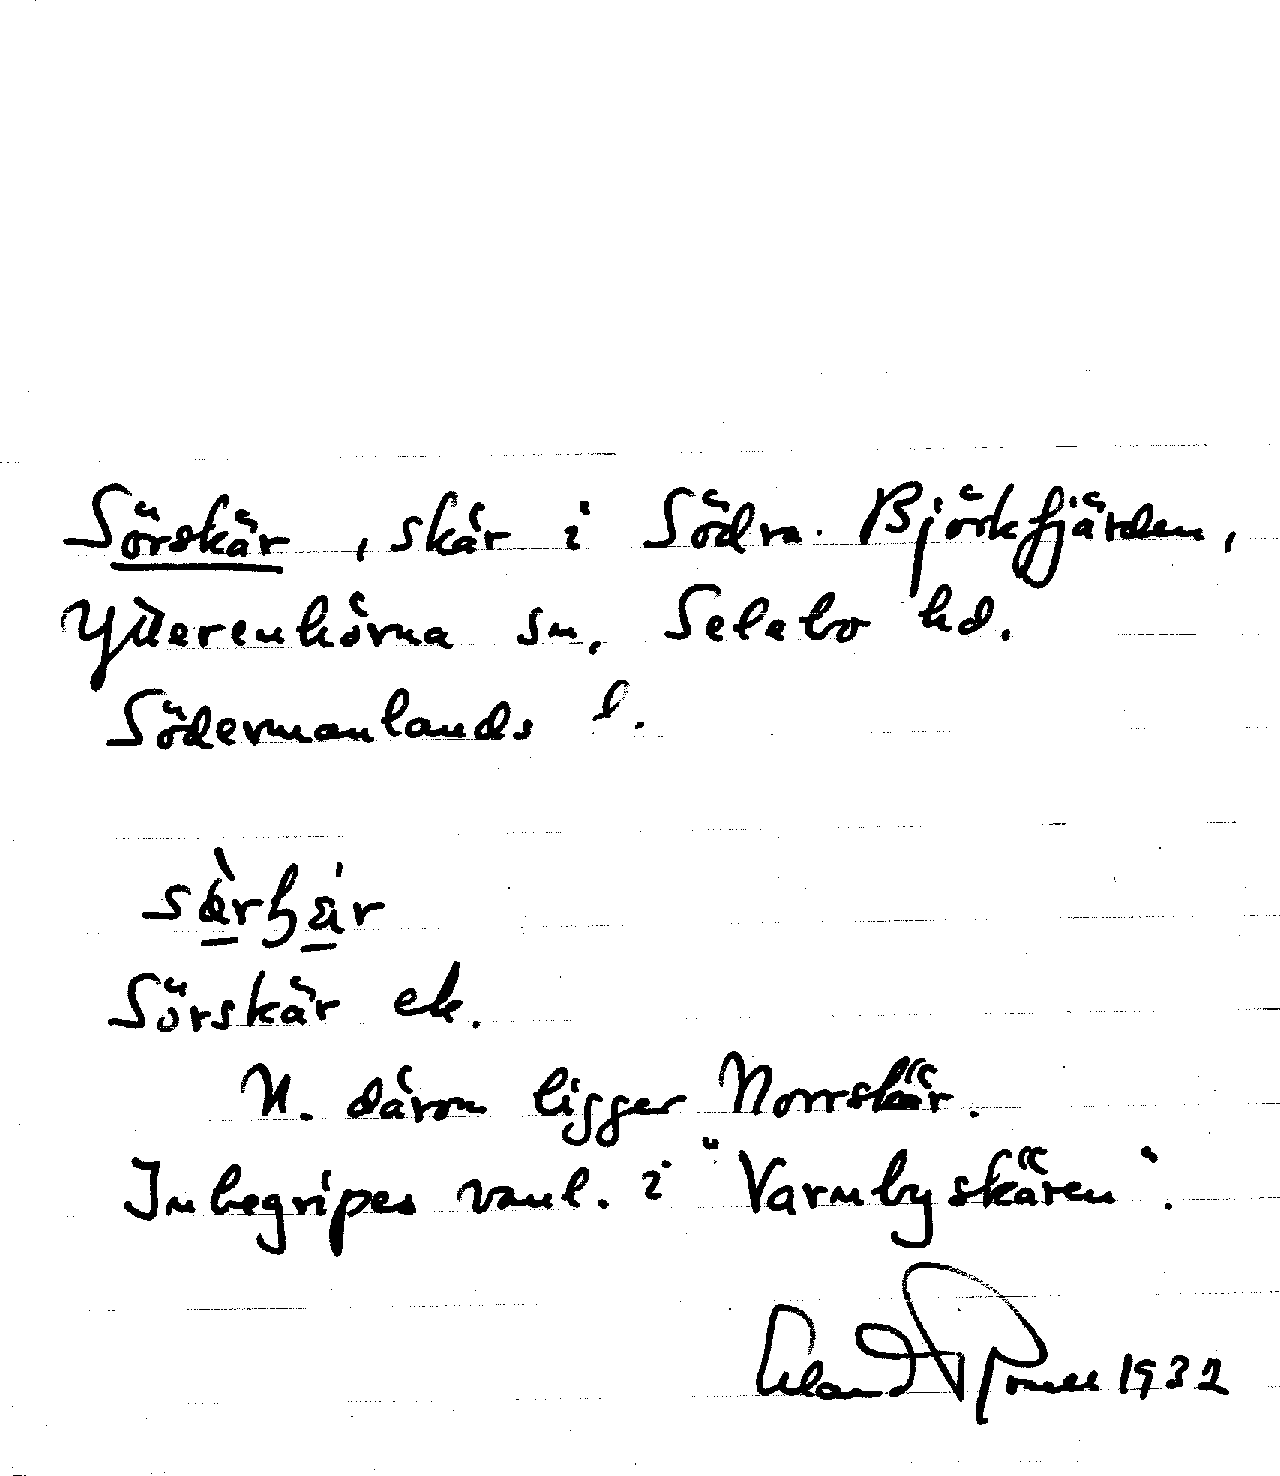 Sörskär, skär i Södra Björkfjärden,
Ytterenhörna sn, Selebo hd.
Södermanlands l.
Sörskär ek.
N. därom ligger Norrskär.
Inbegripes vanl. i "Varnbyskären".
1932